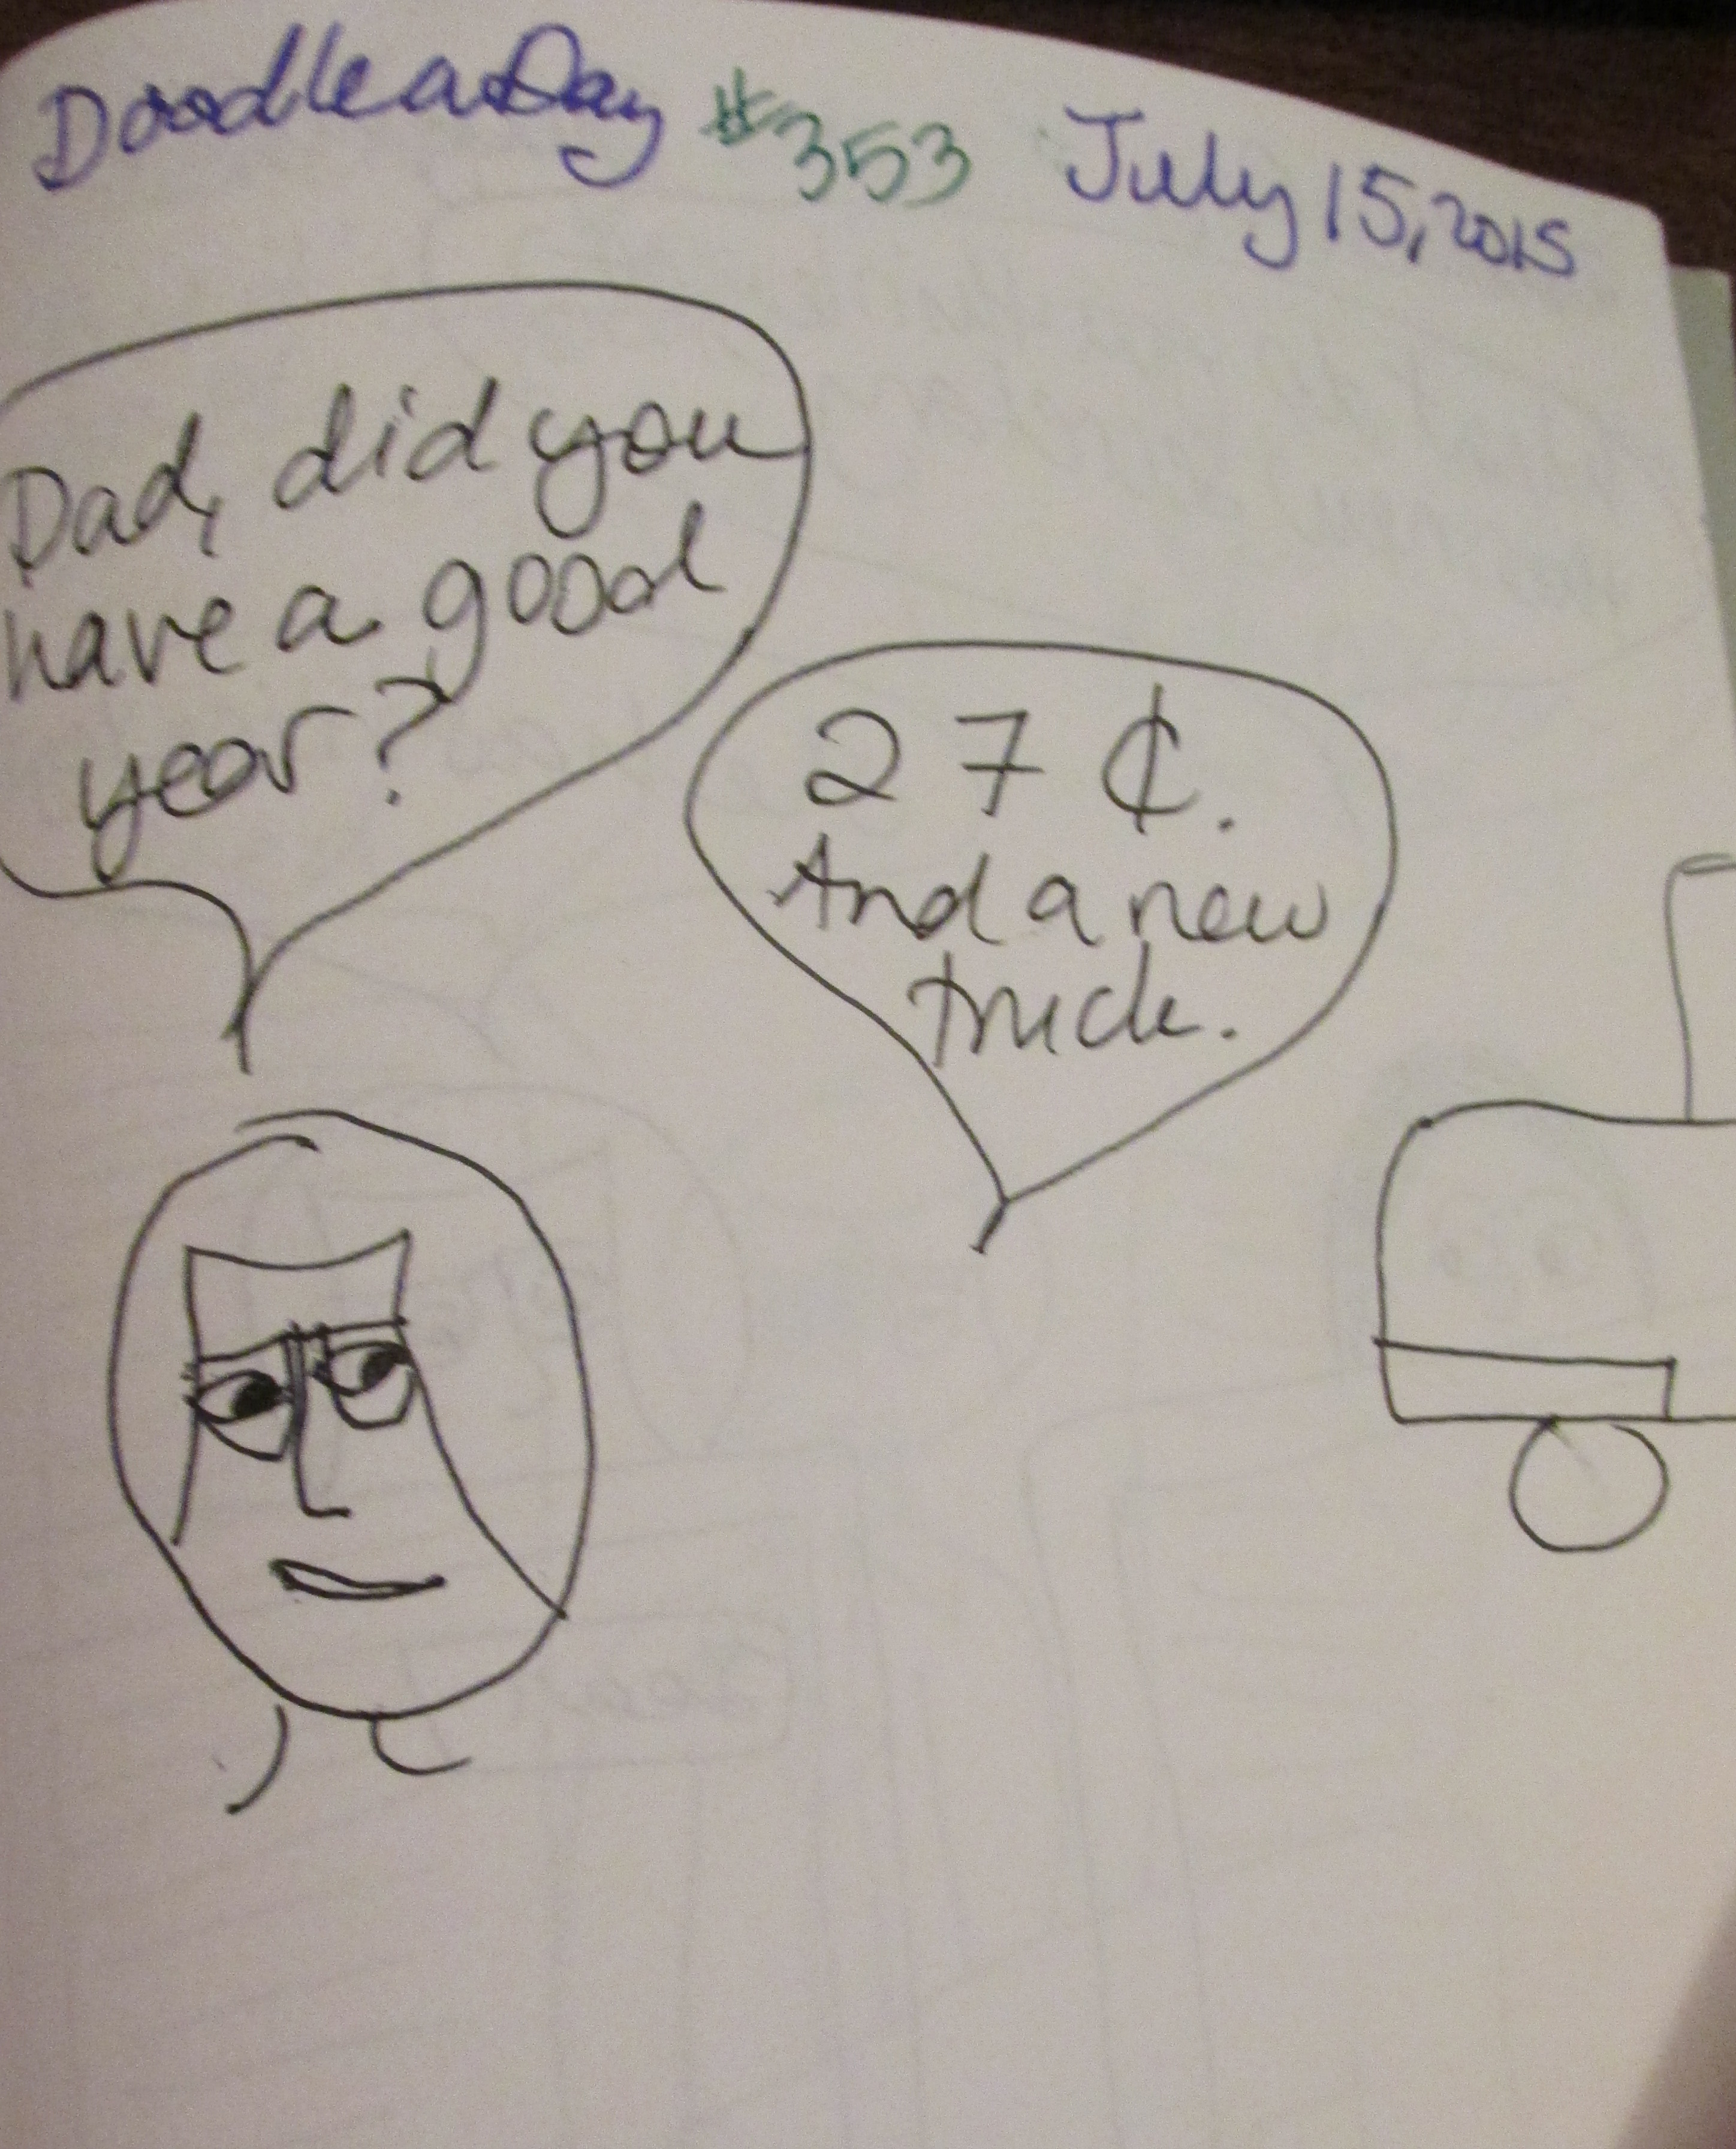 Doodle a Day #353 July 15, 2015
Dad, did you
have a good
year?
27 ¢.
And a new
truck.